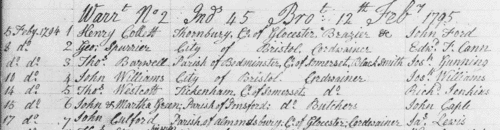 Warrt No 2 Ind 45 Brot 12th Feby 1795
5 Feby 1794 1 Henry Collett Thornbury, Co of Glocester Brazier & John Ford
8 do 2 Geo: Spurrier City of Bristol Cordwainer Edwd T. Cann
do do 3 Thos Barwell Parish of Bedminster, Co of Somerset, Black Smith Jos: Gunning
10 do 4 John Williams City of Bristol Cordwainer Jos: Williams
14 do 5 Thos Westcott Tickenham, Co of Somerset do Richd Jenkins
16 do 6 John & Martha Green; Parish of Butchers John Caple
17 do 7 John Parish of almondsbury, Co of Glocester, Cordwainer Jas Lewis